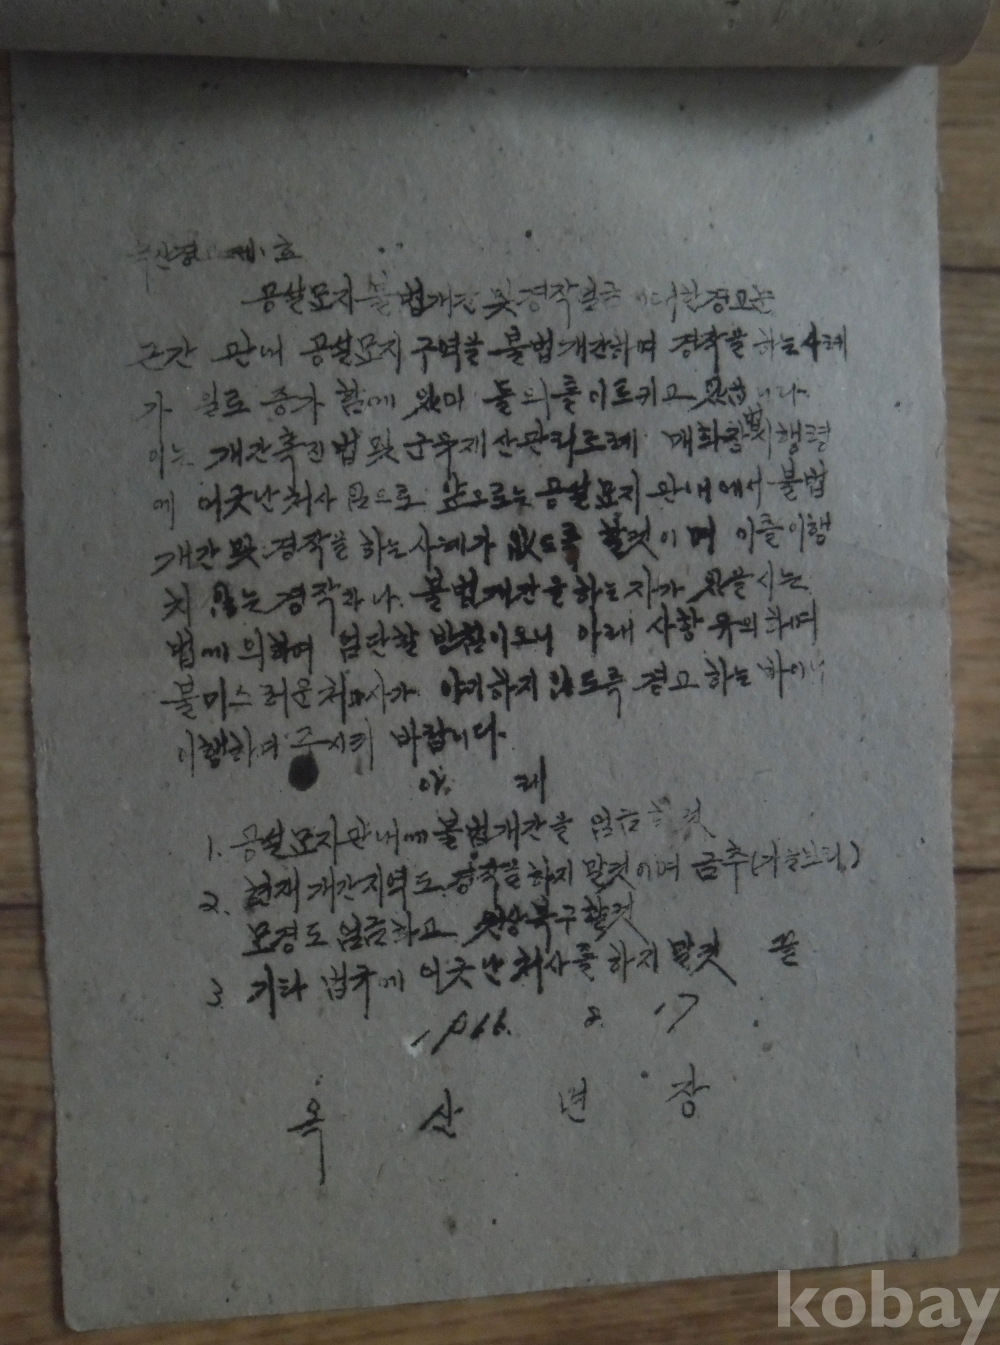 제1호
공설묘지 불법개간 및 경작엄금에 대한 경고문
근간 관내 공설묘지 구역을 불법개간하며 경작을 하는 사례
가 일로 증가함에 있어 물의를 이르키고 있습니다.
이는 개간촉진법 및 군유재산관리조례 매화장 및 시행령
에 어긋난 처사임으로 앞으로는 공설묘지 관내에서 불법
개간 및 경작을 하는 사례가 없도록 할것이며 이를 이행
치 않는 경작자나 불법개간을 하는 자가 있을 시는
법에 의하여 엄단할 방침이오니 아래 사항 유의하며
불미스러운 처사가 야기하지 않도록 경고하는 바이니
이행하여 주시기 바랍니다.
아 래
1. 공설묘지 관내에 불법개간을 엄금할 것
2. 현재 개간지역도 경작을 하지 말것이며 금추(가을보리)
모경도 엄금하고 원상복구할것
3. 기타 법규에 어긋난 처사를 하지 말것 끝
1966. 8. 17
옥 산 면 장
kobay